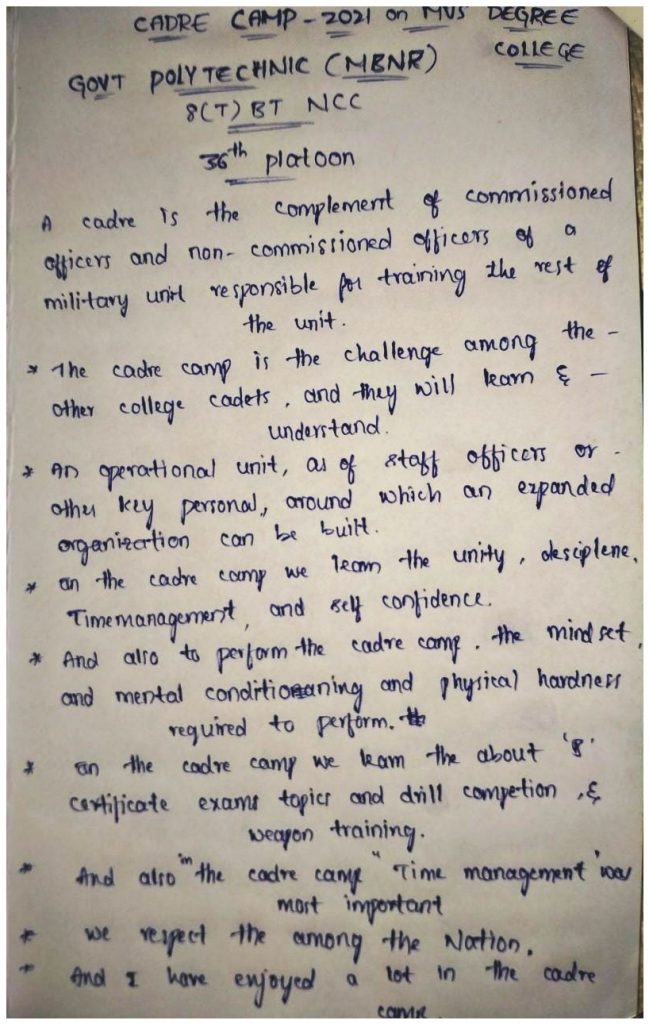 CADRE CAMP - 2021 on MVS DEGREE
COLLEGE
GOVT POLYTECHNIC (MBNR)
8(T) BT NCC
36th platoon
A cadre is the complement of commissioned
officers and non-commissioned officers of a
military unit responsible for training the rest of
the unit.
* The cadre camp is the challenge among the -
other college cadets, and they will learn & -
understand.
* An operational unit, as of staff officers or -
other key personal, around which an expanded
organization can be built.
* on the cadre camp we learn the unity, desciplene,
Timemanagement, and self confidence.
* And also to perform the cadre camp. the mind set,
and mental conditioaning and physical hardness
required to perform.
* on the cadre camp we learn the about 'B'
certificate exams topics and drill competion, &
weapon training.
* And also in the cadre camp "Time management" was
most important
* we respect the among the Nation.
* And I have enjoyed a lot in the cadre
camp